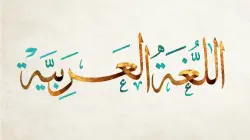 اللُّغَةُ العَرَبِيَّة